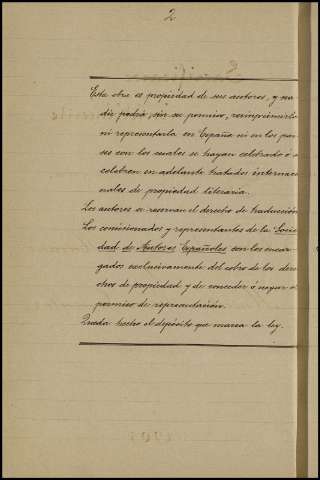 2
Esta obra es propiedad de sus autores, y na-
die podrá, sin su permiso, reimprimirla
ni representarla en España ni en los pai-
ses con los cuales se hayan celebrado ó se
celebren en adelante tratados internacio-
nales de propiedad literaria.
Los autores se reservan el derecho de traducción
Los comisionados y representantes de la Socie-
dad de Autores Españoles son los encar-
gados exclusivamente del cobro de los dere-
chos de propiedad y de conceder ó negar el
permiso de representación.
Queda hecho el depósito que marca la ley.